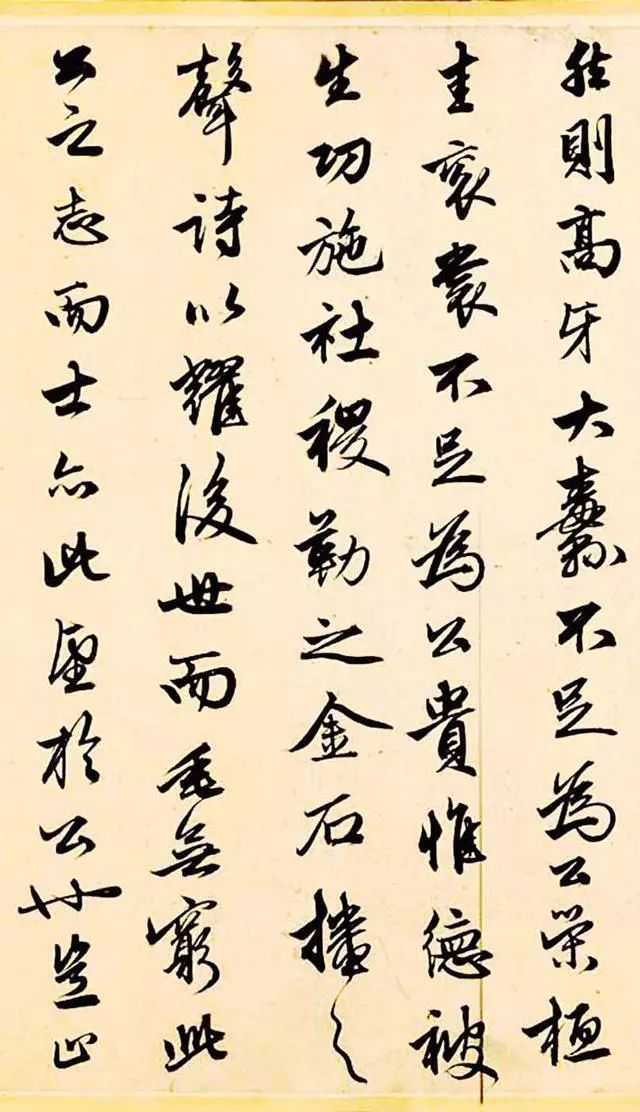 然則高牙大纛不足為公榮桓
圭袞裳不足為公貴惟德被
生功施社稷勒之金石播之
聲詩以耀後世而垂無窮此
公之志而士亦此望於公也豈止